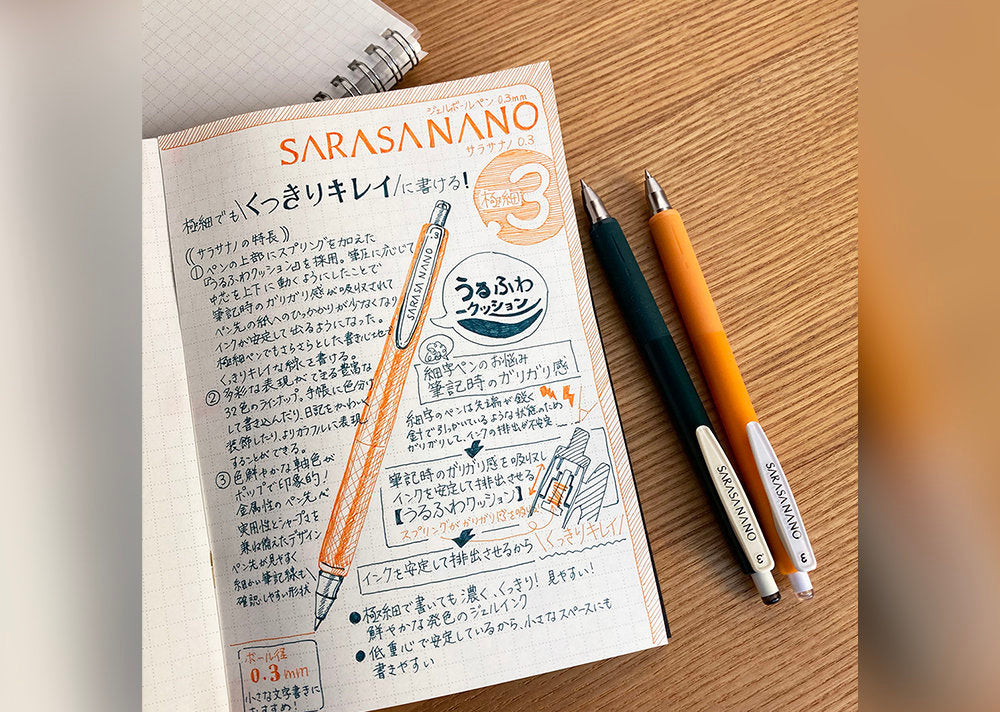 ジェルボールペン 0.3mm
SARASA NANO
サラサナノ 0.3
極細でも\くっきりキレイ/に書ける!
極細
.3
((サラサナノの特長))
①ペンの上部にスプリングを加えた
「うるふわクッション」を採用。筆圧に応じて
中芯を上下に動くようにしたことで
筆記時のガリガリ感が吸収されて
ペン先の紙へのひっかかりが少なくなり
インクが安定して出るようになった。
極細ペンでもさらさらとした書き心地で
くっきりキレイな線を書ける。
②多彩な表現ができる豊富な
32色のラインナップ。手帳に色分け
して書き込んだり、日記をかわいく
装飾したり、よりカラフルに表現
することができる。
③色鮮やかな軸色が
ポップで印象的!
金属性のペン先へ
実用性とシャープさを
兼ね備えたデザイン
ペン先が見やすく
細かい筆記線も
確認しやすい形状
.3
SARASA NANO
うるふわ
クッション
細字ペンのお悩み
筆記時のガリガリ感
細字のペンは先端が鋭く
針で引っかいているような状態のため
ガリガリして、インクの排出が不安定
筆記時のガリガリ感を吸収し
インクを安定して排出させる
【うるふわクッション】
スプリングがガリガリ感を吸収
インクを安定して排出させるから
\くっきりキレイ/
●極細で書いても濃く、くっきり!見やすい!
鮮やかな発色のジェルインク
●低重心で安定しているから、小さなスペースにも
書きやすい
ボール径
0.3mm
小さな文字書きに
おすすめ!
SARASA NANO
.3
SARASA NANO
.3